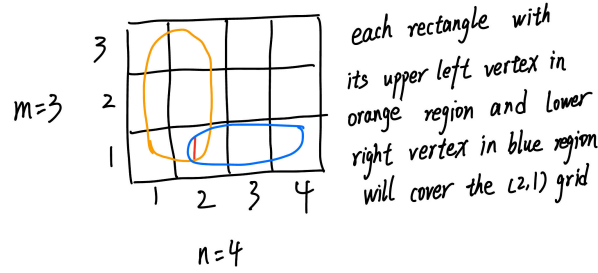 3
m=3
2
1
1 2 3 4
n=4
each rectangle with
its upper left vertex in
orange region and lower
right vertex in blue region
will cover the (2,1) grid